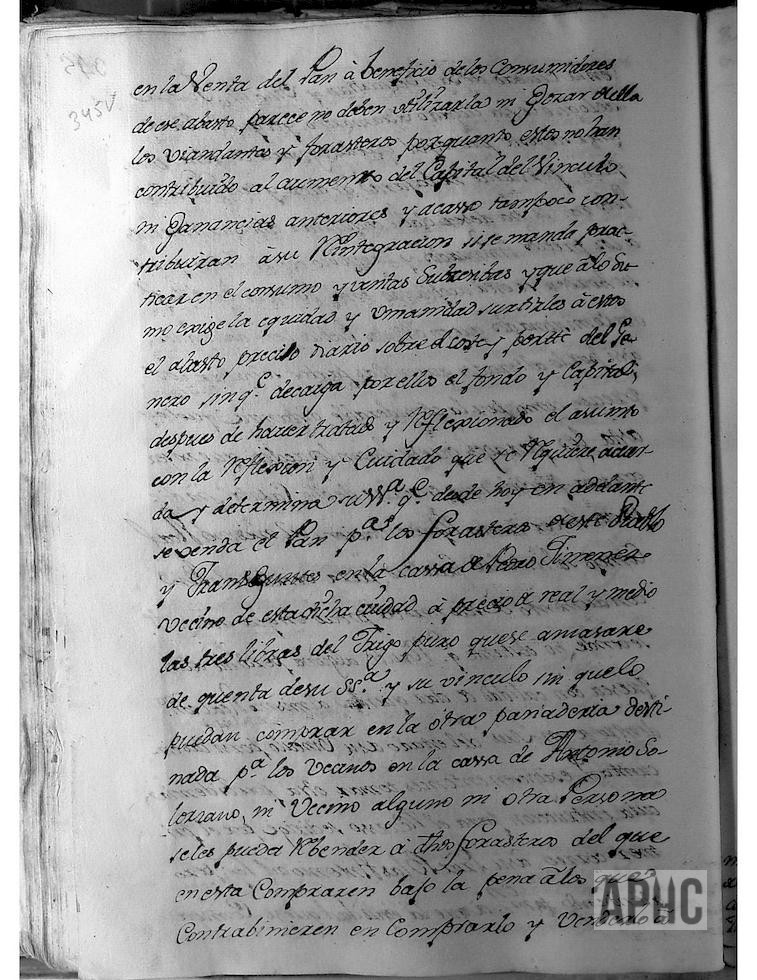 345v
en la Venta del Pan à beneficio de los Consumidores
de ese abasto parece no deben utilizarla ni Gozar de ella
los viandantes y forasteros por quanto estos no han
contribuido al aumento del Capital del Vinculo
ni Ganancias anteriores y acasso tampoco con-
tribuiran à su Rintegracion si se manda prac-
ticar en el consumo y ventas Subcesibas y que à lo Su-
mo exige la equidad y umanidad surtirles à estos
el abasto preciso diario sobre el coste y porte del Ge-
nero sin q.e decaiga por ellos el fondo y Capital,
despues de haver tratado y Reflexionado el asunto
con la Reflexion y Cuidado que se Rquiere, acuer-
da y determina su SS.a q.e desde hoy en adelante
se venda el Pan p.a los forasteros de este Pueblo
y Transeuntes en la cassa de Pedro Timenez
vecino de esta dicha ciudad à precio de real y medio
las tres libras del Trigo puro que se amasare
de quenta de su SS.a y su vinculo sin que lo
puedan comprar en la otra panaderia desti-
nada p.a los vecinos en la cassa de Antonio So-
lorzano, ni Vecino alguno ni otra Persona
se les pueda Rbender à dhos forasteros del que
en esta Compraren bajo la pena à los que
Contrabinieren en Comprarlo y Venderlo à
APHC